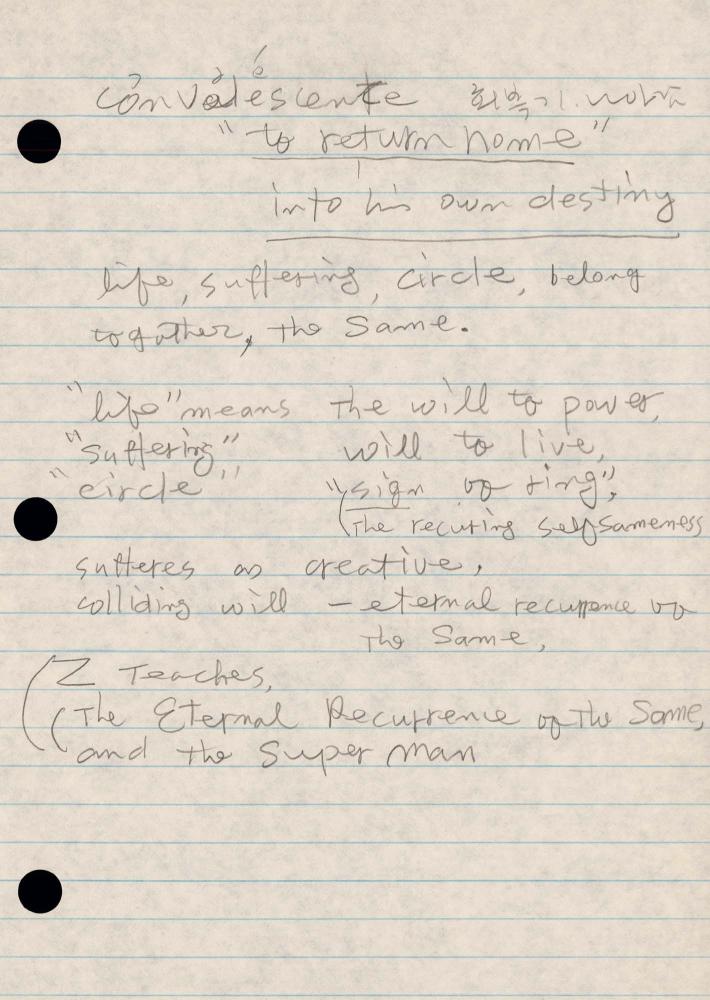 convalescente 회복기.
"to return home"
into his own destiny
life, suffering, circle, belong
togather, the Same.
"life" means the will to power,
"suffering" will to live,
"circle" "sign of ring",
(the recuring selfsameness
sufferes as creative,
colliding will – eternal recurrence of
the Same,
(Z Teaches,
(The Eternal Recurrence of the Same,
and the Super man